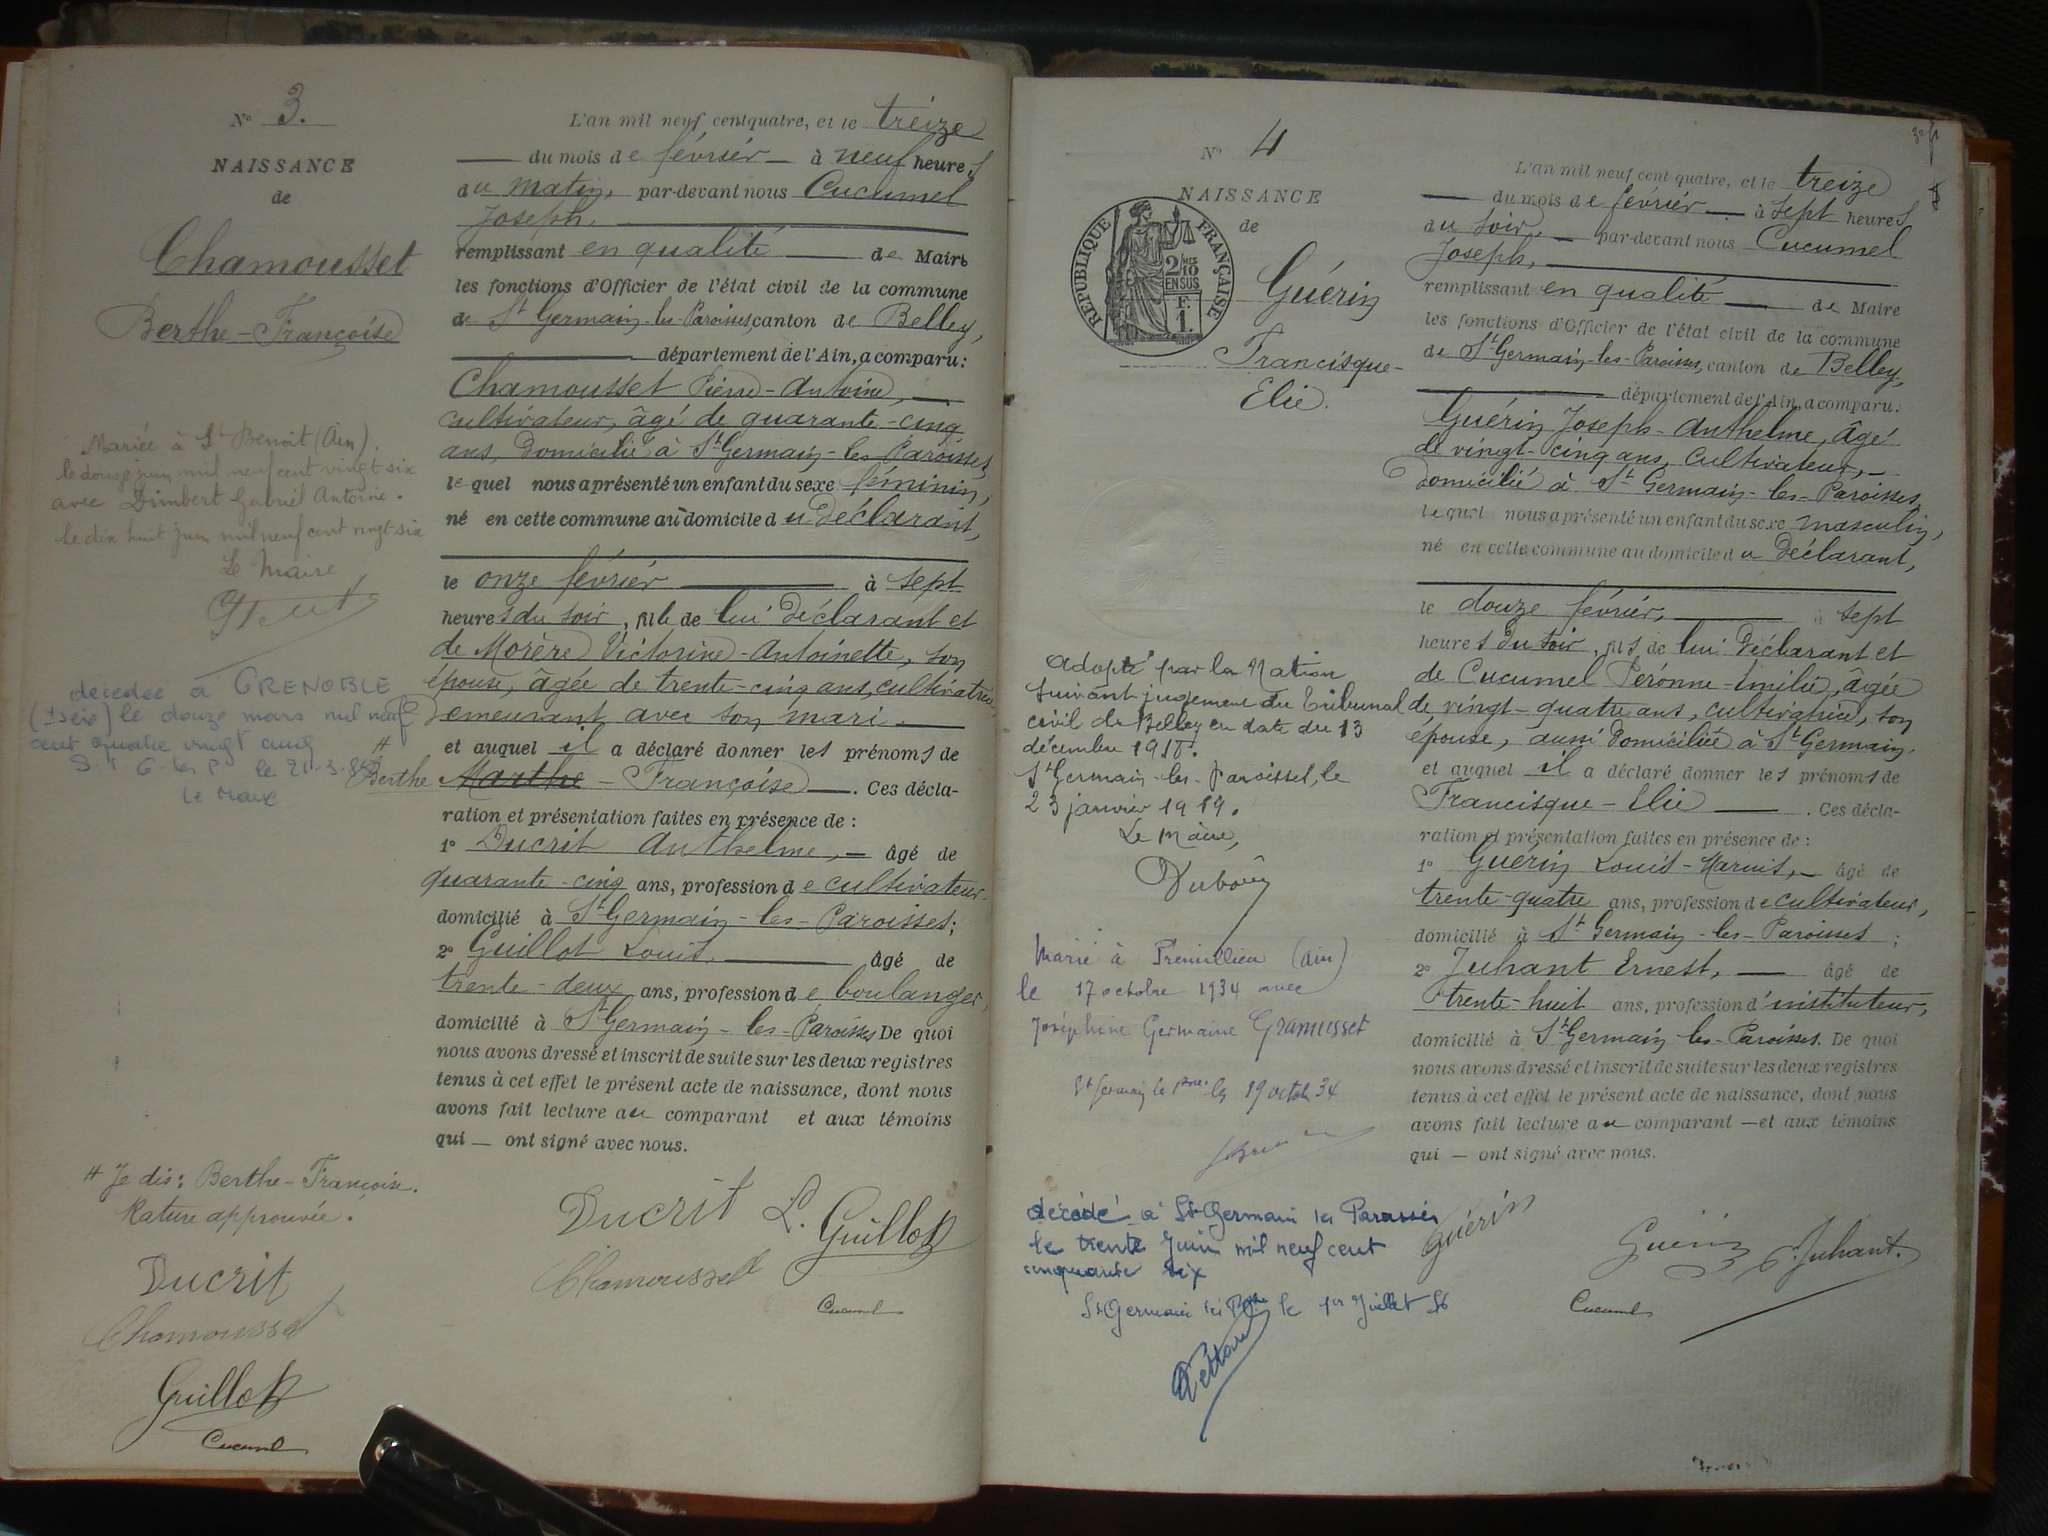 N° 3.
NAISSANCE
de
Chamousset
Berthe-Françoise
Mariée à St Benoit (Ain).
le douze juin mil neuf cent vingt six
avec Dimbert Gabriel Antoine.
le dix huit juin mil neuf cent vingt six
Le Maire
décédée à GRENOBLE
(Isère) le douze mars mil neuf
cent quatre vingt cinq
le Maire
L'an mil neuf cent quatre, et le treize
du mois de février à neuf heures
du matin, par-devant nous Cucumel
Joseph,
remplissant en qualité de Maire
les fonctions d'Officier de l'état civil de la commune
de St Germain-les-Paroisses canton de Belley,
département de l'Ain, a comparu:
Chamousset Pierre-Antoine,
cultivateur, âgé de quarante-cinq
ans, domicilié à St Germain-les-Paroisses
lequel nous a présenté un enfant du sexe féminin,
né en cette commune au domicile du Déclarant,
le onze février à sept
heures du soir, fille de lui Déclarant et
de Morère Victorine-Antoinette, son
épouse, agée de trente-cinq ans, cultivatrice,
demeurant avec son mari
et auquel il a déclaré donner les prénoms de
# Berthe Marthe - Françoise. Ces décla-
ration et présentation faites en présence de :
1° Ducrit Anthelme, âgé de
quarante-cinq ans, profession de cultivateur
domicilié à St Germain-les-Paroisses;
2° Guillot Louis, âgé de
trente-deux ans, profession de boulanger,
domicilié à St Germain-les-Paroisses De quoi
nous avons dressé et inscrit de suite sur les deux registres
tenus à cet effet le présent acte de naissance, dont nous
avons fait lecture au comparant et aux témoins
qui — ont signé avec nous.
# Je dis: Berthe-Françoise.
Rature approuvée.
Ducrit
Chamousset
Guillot
Cucumel
Ducrit L. Guillot
Chamousset
Cucumel
N° 4
NAISSANCE
de
RÉPUBLIQUE FRANÇAISE
2/10 EN SUS
F.
1.
Guérin
Francisque-
Elie.
Adopté par la Nation
suivant jugement du Tribunal
civil de Belley en date du 13
décembre 1918.
St Germain-les-Paroisses, le
23 janvier 1919.
Le Maire,
Marié à Prémillieu (Ain)
le 17 octobre 1934 avec
Joséphine Germaine Gramusset
St Germain le 19 octob 34
décédé à St Germain les Paroisses
le trente juin mil neuf cent
cinquante six
St Germain les le 1er Juillet 56
L'an mil neuf cent quatre, et le treize
du mois de février à sept heures
du soir, par-devant nous Cucumel
Joseph,
remplissant en qualité de Maire
les fonctions d'Officier de l'état civil de la commune
de St Germain-les-Paroisses, canton de Belley,
département de l'Ain, a comparu:
Guérin Joseph-Anthelme, âgé
de vingt-cinq ans, cultivateur,
domicilié à St Germain-les-Paroisses,
lequel nous a présenté un enfant du sexe masculin,
né en cette commune au domicile du Déclarant,
le douze février, à sept
heures du soir, fils de lui Déclarant et
de Cucumel Péronne-Emilie, agée
de vingt-quatre ans, cultivatrice, son
épouse, aussi domiciliée à St Germain.
et auquel il a déclaré donner les prénoms de
Francisque-Elie. Ces décla-
ration et présentation faites en présence de :
1° Guérin Louis-Marius, âgé de
trente-quatre ans, profession de cultivateur,
domicilié à St Germain-les-Paroisses ;
2° Juhant Ernest, âgé de
trente-huit ans, profession d'instituteur,
domicilié à St Germain-les-Paroisses. De quoi
nous avons dressé et inscrit de suite sur les deux registres
tenus à cet effet le présent acte de naissance, dont nous
avons fait lecture au comparant — et aux témoins
qui — ont signé avec nous.
Guérin
Guérin Juhant.
Cucumel